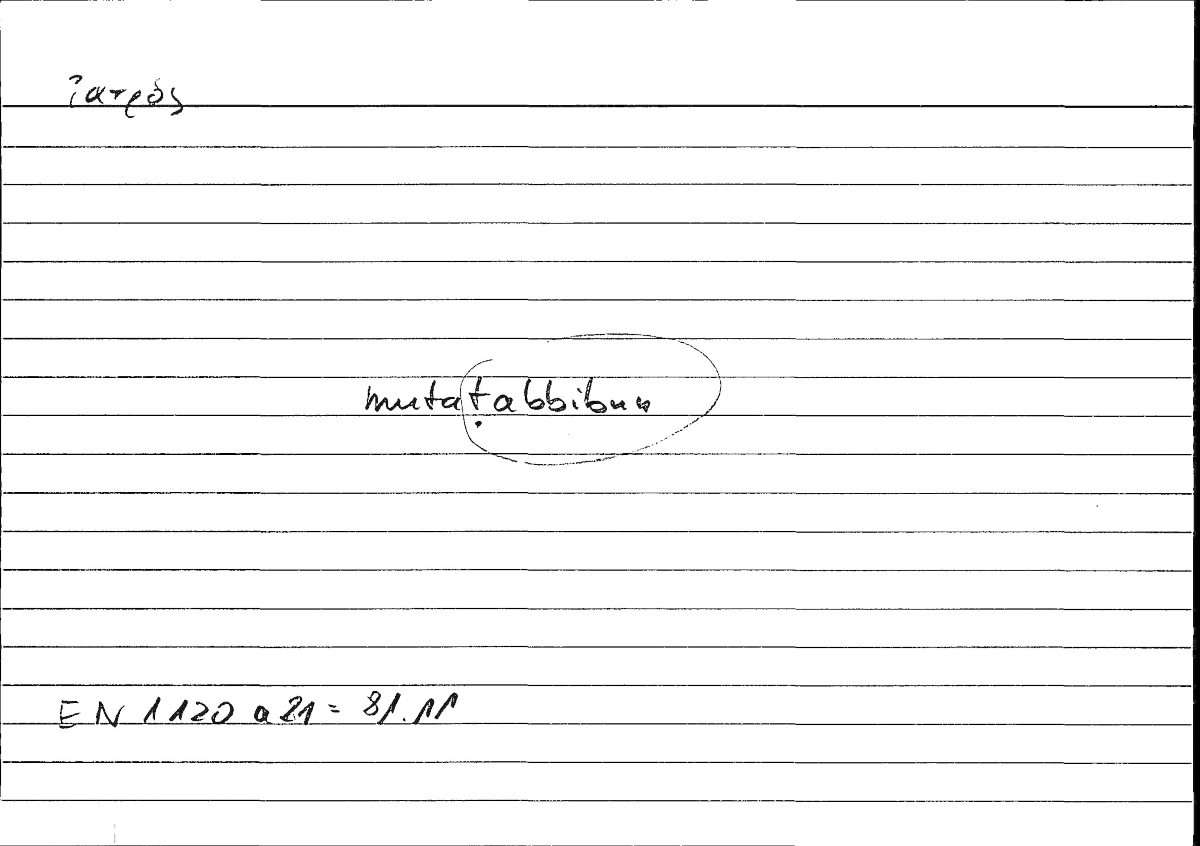 ἰατρός
mutaṭabbibun
EN 1120 a 21 = 81.11